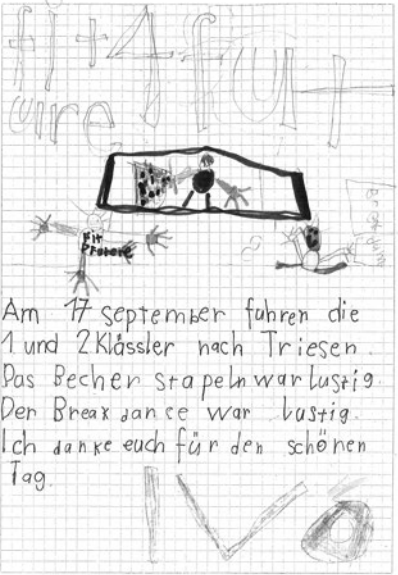 fit 4 fut
ure
Fit
Am 17 september fuhren die
1 und 2 Klässler nach Triesen.
Das Becher stapeln war lustig.
Der Breakdance war lustig.
Ich danke euch für den schönen
Tag.
IVO